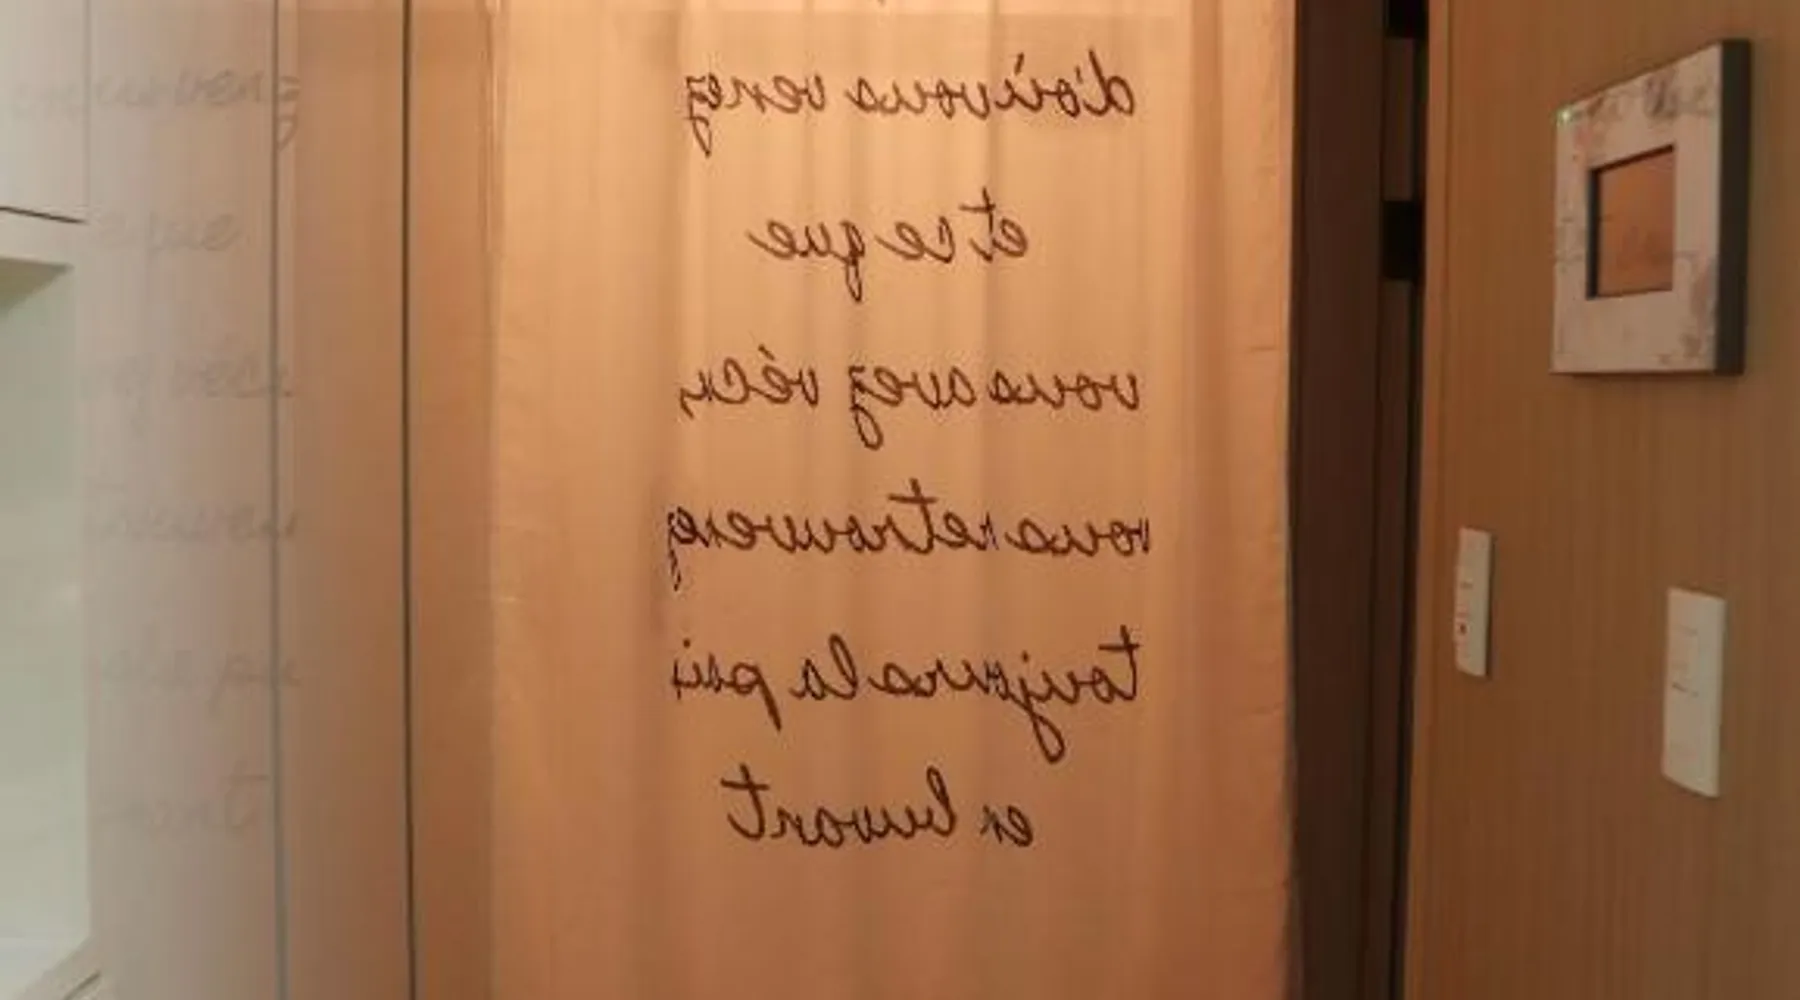 d'où vous venez
et ce que
vous avez vécu,
vous retrouverez
toujours la paix
en buvant